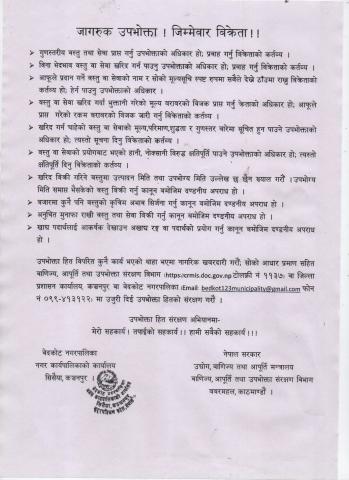 जागरुक उपभोक्ता ! जिम्मेवार विक्रेता!!
➤ गुणस्तरीय वस्तु तथा सेवा प्राप्त गर्नु उपभोक्ताको अधिकार हो; प्रवाह गर्नु विक्रेताको कर्तव्य ।
➤ विना भेदभाव वस्तु वा सेवा खरिद गर्न पाउनु उपभोक्ताको अधिकार हो; प्रवाह गर्नु विक्रेताको कर्तव्य ।
➤ आफूले प्रदान गर्ने वस्तु वा सेवाको नाम र सोको मूल्यसूचि स्पष्ट रुपमा सबैले देख्ने ठाँउमा राख्नु विक्रेताको
कर्तव्य हो; हेर्न पाउनु उपभोक्ताको अधिकार ।
➤ वस्तु वा सेवा खरिद गर्दा भुक्तानी गरेको मूल्य बराबरको विजक प्राप्त गर्नु उपभोक्ताको अधिकार हो; आफूले
प्राप्त गरेको रकम बराबरको विजक जारी गर्नु विक्रेताको कर्तव्य ।
➤ खरिद गर्न चाहेको वस्तु वा सेवाको मूल्य,परिमाण,शुद्धता र गुणस्तर बारेमा सूचित हुन पाउने उपभोक्ताको
अधिकार हो; त्यस्तो सूचना दिनु विक्रेताको कर्तव्य ।
➤ वस्तु वा सेवाको प्रयोगबाट भएको हानी, नोक्सानी विरुद्ध क्षतिपूर्ति पाउने उपभोक्ताको अधिकार हो; त्यस्तो
क्षतिपूर्ति दिनु विक्रेताको कर्तव्य ।
➤ खरिद विक्री गरिने वस्तुमा उत्पादन मिति तथा उपभोग्य मिति उल्लेख छ छैन ख्याल गरौं ।उपभोग्य
मिति समाप्त भैसकेको वस्तु विक्री गर्नु कानून बमोजिम दण्डनीय अपराध हो ।
➤ बजारमा कुनै पनि वस्तुको कृत्रिम अभाव सिर्जना गर्नु कानून बमोजिम दण्डनीय अपराध हो ।
➤ अनुचित मुनाफा राखी वस्तु तथा सेवा विक्री गर्नु कानून बमोजिम दण्डनीय अपराध हो ।
➤ खाद्य पदार्थलाई आकर्षक देखाउन अखाद्य रङ्ग वा पदार्थको प्रयोग गर्नु कानून बमोजिम दण्डनीय अपराध हो
।
उपभोक्ता हित विपरित कुनै कार्य भएको थाहा भएमा नागरिक खबरदारी गरौं; सोको आधार प्रमाण सहित
वाणिज्य, आपूर्ति तथा उपभोक्ता संरक्षण विभाग (https:crmis.doc.gov.np टोलफ्री नं ११३७) वा जिल्ला
प्रशासन कार्यालय, कञ्चनपुर वा बेदकोट नगरपालिका (Email: bedkot123municipality@gmail.com फोन
नं ०९९-४१३१२२) मा उजुरी दिई उपभोक्ता हितको संरक्षण गरौं ।
उपभोक्ता हित संरक्षण अभियानमा-
मेरो सहकार्य! तपाईंको सहकार्य!! हामी सबैको सहकार्य!!!
बेदकोट नगरपालिका
नगर कार्यपालिकाको कार्यालय
सिसैया, कञ्चनपुर ।
नेपाल सरकार
उद्योग, वाणिज्य तथा आपूर्ति मन्त्रालय
वाणिज्य, आपूर्ति तथा उपभोक्ता संरक्षण विभाग
बबरमहल, काठमाण्डौं ।